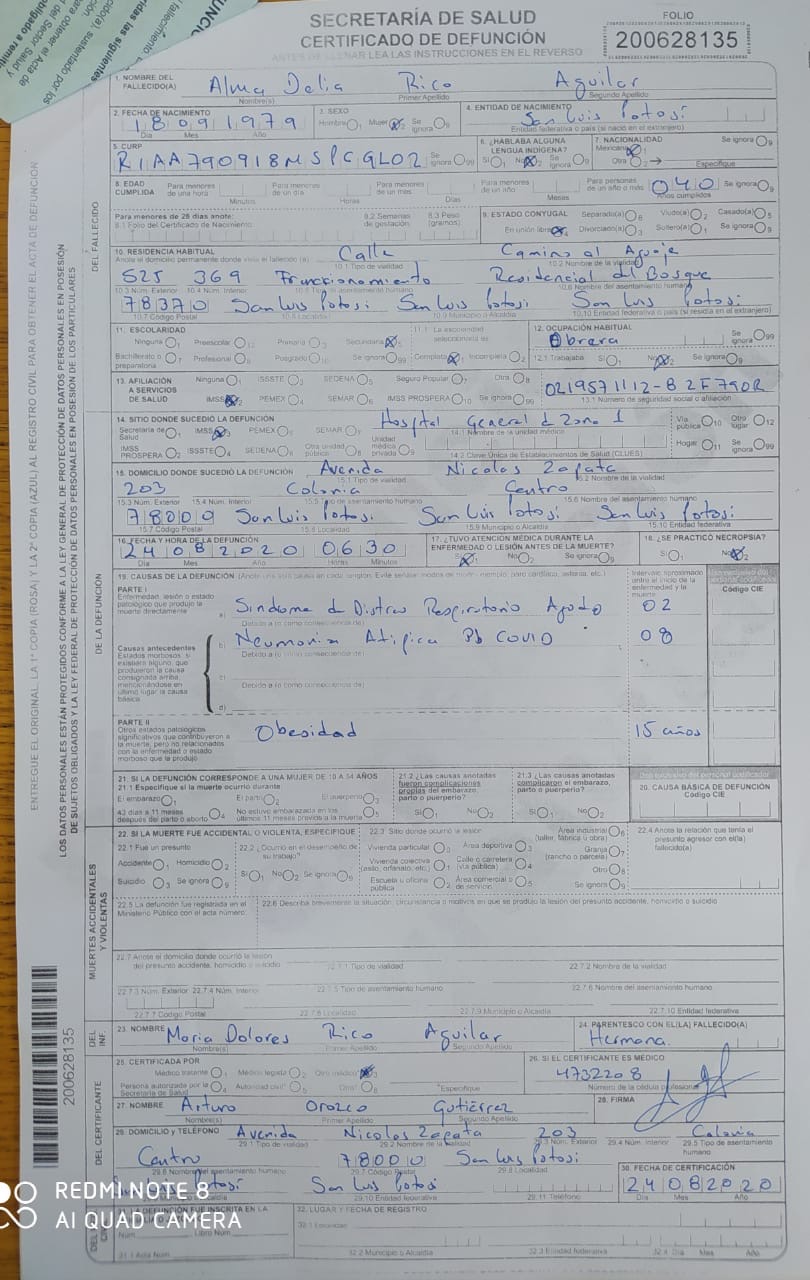 SECRETARÍA DE SALUD
CERTIFICADO DE DEFUNCIÓN
ANTES DE LLENAR LEA LAS INSTRUCCIONES EN EL REVERSO
FOLIO
200628135
1. NOMBRE DEL FALLECIDO(A) Alma Delia Rico Aguilar
Nombre(s) Primer Apellido Segundo Apellido
2. FECHA DE NACIMIENTO 18 09 1979 3. SEXO Hombre 1 Mujer 2 Se ignora 9 4. ENTIDAD DE NACIMIENTO San Luis Potosí
Día Mes Año Entidad federativa o país (si nació en el extranjero)
5. CURP RIAA790918MSPCGL02 Se ignora 99 6. ¿HABLABA ALGUNA LENGUA INDÍGENA? Sí 1 No 2 Se ignora 9 7. NACIONALIDAD Mexicana 1 Otra 2 Se ignora 9
Especifique
8. EDAD CUMPLIDA Para menores de una hora Minutos Para menores de un día Horas Para menores de un mes Días Para menores de un año Meses Para personas de un año o más 040 Años cumplidos Se ignora 9
Para menores de 28 días anote: 8.1 Folio del Certificado de Nacimiento 8.2 Semanas de gestación 8.3 Peso (gramos)
9. ESTADO CONYUGAL Separado(a) 6 Viudo(a) 2 Casado(a) 5 En unión libre 4 Divorciado(a) 3 Soltero(a) 1 Se ignora 9
10. RESIDENCIA HABITUAL Calle Camino al Aguaje
Anote el domicilio permanente donde vivía el fallecido(a) 10.1 Tipo de vialidad 10.2 Nombre de la vialidad
525 369 Fraccionamiento Residencial del Bosque
10.3 Núm. Exterior 10.4 Núm. Interior 10.5 Tipo de asentamiento humano 10.6 Nombre del asentamiento humano
78370 San Luis Potosí San Luis Potosí San Luis Potosí
10.7 Código Postal 10.8 Localidad 10.9 Municipio o Alcaldía 10.10 Entidad federativa o país (si residía en el extranjero)
11. ESCOLARIDAD 11.1 La escolaridad seleccionada es 12. OCUPACIÓN HABITUAL Obrera Se ignora 99
Ninguna 1 Preescolar Primaria 3 Secundaria
Bachillerato o preparatoria 7 Profesional Posgrado 10 Se ignora 99 Completa 1 Incompleta 2 12.1 Trabajaba Sí 1 No 2 Se ignora 9
13. AFILIACIÓN A SERVICIOS DE SALUD Ninguna 1 ISSSTE 3 SEDENA 5 Seguro Popular 7 Otra 8 0219571112-8 2F790R
IMSS 2 PEMEX 4 SEMAR 6 IMSS PROSPERA 10 Se ignora 99 13.1 Número de seguridad social o afiliación
14. SITIO DONDE SUCEDIÓ LA DEFUNCIÓN Hospital General d Zona 1
Secretaría de Salud 1 IMSS 3 PEMEX SEMAR 7 14.1 Nombre de la unidad médica Vía pública 10 Otro lugar 12
IMSS PROSPERA 2 ISSSTE 4 SEDENA 6 Otra unidad pública 8 Unidad médica privada 9 14.2 Clave Única de Establecimientos de Salud (CLUES) Hogar 11 Se ignora 99
15. DOMICILIO DONDE SUCEDIÓ LA DEFUNCIÓN Avenida Nicolas Zapata
15.1 Tipo de vialidad 15.2 Nombre de la vialidad
203 Colonia Centro
15.3 Núm. Exterior 15.4 Núm. Interior 15.5 Tipo de asentamiento humano 15.6 Nombre del asentamiento humano
78000 San Luis Potosí San Luis Potosí San Luis Potosí
15.7 Código Postal 15.8 Localidad 15.9 Municipio o Alcaldía 15.10 Entidad federativa
16. FECHA Y HORA DE LA DEFUNCIÓN 24 08 2020 0630 17. ¿TUVO ATENCIÓN MÉDICA DURANTE LA ENFERMEDAD O LESIÓN ANTES DE LA MUERTE? 18. ¿SE PRACTICÓ NECROPSIA?
Día Mes Año Horas Minutos Sí 1 No 2 Se ignora 9 Sí 1 No 2
19. CAUSAS DE LA DEFUNCIÓN Intervalo aproximado entre el inicio de la enfermedad y la muerte Código CIE
PARTE I
Enfermedad, lesión o estado patológico que produjo la muerte directamente a) Sindrome d Distres Respiratorio Agudo 02
Debido a (o como consecuencia de)
Causas antecedentes b) Neumonia Atipica Pb COVID 08
Estados morbosos, si existiera alguno, que produjeron la causa consignada arriba, mencionándose en último lugar la causa básica
Debido a (o como consecuencia de)
c)
Debido a (o como consecuencia de)
d)
PARTE II
Otros estados patológicos significativos que contribuyeron a la muerte, pero no relacionados con la enfermedad o estado morboso que la produjo Obesidad 15 años
21. SI LA DEFUNCIÓN CORRESPONDE A UNA MUJER DE 10 A 54 AÑOS
21.1 Especifique si la muerte ocurrió durante
El embarazo 1 El parto 2 El puerperio 3
43 días a 11 meses después del parto o aborto 4 No estuvo embarazada en los últimos 11 meses previos a la muerte 5
21.2 ¿Las causas anotadas fueron complicaciones propias del embarazo, parto o puerperio? Sí 1 No 2
21.3 ¿Las causas anotadas complicaron el embarazo, parto o puerperio? Sí 1 No 2
20. CAUSA BÁSICA DE DEFUNCIÓN
Código CIE
22. SI LA MUERTE FUE ACCIDENTAL O VIOLENTA, ESPECIFIQUE
22.1 Fue un presunto Accidente 1 Homicidio 2 Suicidio 3 Se ignora 9
22.2 ¿Ocurrió en el desempeño de su trabajo? Sí 1 No 2 Se ignora 9
22.3 Sitio donde ocurrió la lesión
Vivienda particular 0 Área deportiva 3 Área industrial (taller, fábrica u obra) 6
Vivienda colectiva (asilo, orfanato, etc.) 1 Calle o carretera (vía pública) 4 Granja (rancho o parcela) 7
Escuela u oficina pública 2 Área comercial o de servicios 5 Otro 8 Se ignora 9
22.4 Anote la relación que tenía el presunto agresor con el(la) fallecido(a)
22.5 La defunción fue registrada en el Ministerio Público con el acta número:
22.6 Describa brevemente la situación, circunstancia o motivos en que se produjo la lesión del presunto accidente, homicidio o suicidio
22.7 Anote el domicilio donde ocurrió la lesión del presunto accidente, homicidio o suicidio
22.7.1 Tipo de vialidad 22.7.2 Nombre de la vialidad
22.7.3 Núm. Exterior 22.7.4 Núm. Interior 22.7.5 Tipo de asentamiento humano 22.7.6 Nombre del asentamiento humano
22.7.7 Código Postal 22.7.8 Localidad 22.7.9 Municipio o Alcaldía 22.7.10 Entidad federativa
23. NOMBRE Maria Dolores Rico Aguilar 24. PARENTESCO CON EL(LA) FALLECIDO(A) Hermana
Nombre(s) Primer Apellido Segundo Apellido
25. CERTIFICADA POR Médico tratante 1 Médico legista 2 Otro médico 3
Persona autorizada por la Secretaría de Salud 4 Autoridad civil 5 Otro *Especifique
26. SI EL CERTIFICANTE ES MÉDICO
4732208
Número de la cédula profesional
27. NOMBRE Arturo Orozco Gutiérrez 28. FIRMA
Nombre(s) Primer Apellido Segundo Apellido
29. DOMICILIO Y TELÉFONO Avenida Nicolas Zapata 203 Colonia
29.1 Tipo de vialidad 29.2 Nombre de la vialidad 29.3 Núm. Exterior 29.4 Núm. Interior 29.5 Tipo de asentamiento humano
Centro 78000 San Luis Potosi
29.6 Nombre del asentamiento humano 29.7 Código Postal 29.8 Localidad
San Luis Potosi San Luis Potosi
29.10 Entidad federativa 29.11 Teléfono
30. FECHA DE CERTIFICACIÓN
24 08 2020
Día Mes Año
31. LA DEFUNCIÓN FUE INSCRITA EN LA
32. LUGAR Y FECHA DE REGISTRO
32.1 Localidad
32.2 Municipio o Alcaldía 32.3 Entidad federativa 32.4 Día Mes Año
DEL FALLECIDO
DE LA DEFUNCIÓN
MUERTES ACCIDENTALES Y VIOLENTAS
DEL INF.
DEL CERTIFICANTE
ENTREGUE EL ORIGINAL, LA 1ª COPIA (ROSA) Y LA 2ª COPIA (AZUL) AL REGISTRO CIVIL PARA OBTENER EL ACTA DE DEFUNCIÓN
LOS DATOS PERSONALES ESTÁN PROTEGIDOS CONFORME A LA LEY GENERAL DE PROTECCIÓN DE DATOS PERSONALES EN POSESIÓN
DE SUJETOS OBLIGADOS Y LA LEY FEDERAL DE PROTECCIÓN DE DATOS PERSONALES EN POSESIÓN DE LOS PARTICULARES
200628135
REDMI NOTE 8
AI QUAD CAMERA